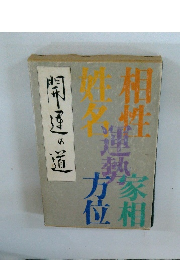 相性
家相
姓名
運勢
方位
開運の道